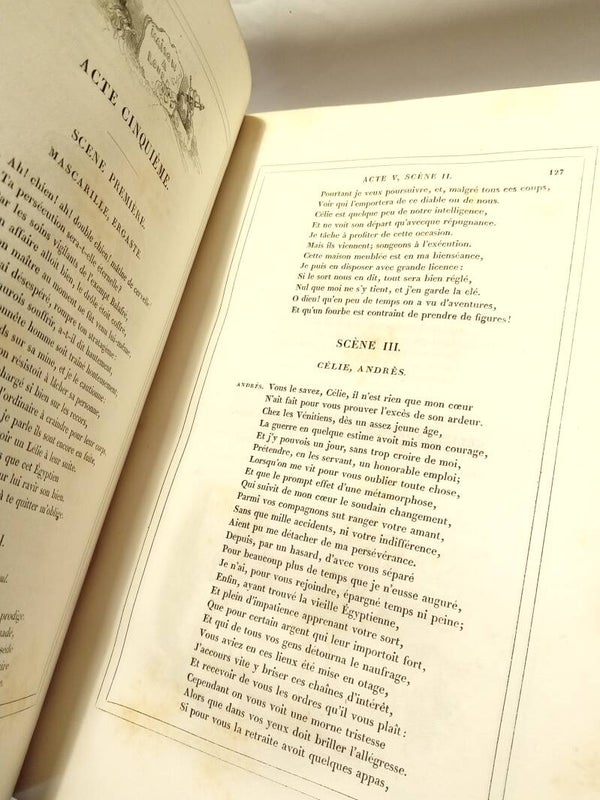 ACTE CINQUIÈME.
SCÈNE PREMIÈRE
MASCARILLE, ERGASTE.
Ah! chien! ah! double chien! mâtine de cervelle!
Ta persécution sera-t-elle éternelle?
Par les soins vigilants de l'exempt Balafré
affaire alloit bien, le drôle étoit coffré,
maître au moment ne fût venu lui-même,
désespéré, rompre ton stratagème:
saurois souffrir, a-t-il dit hautement,
honnête homme soit traîné honteusement,
sur sa mine, et je le cautionne:
résistoit à lâcher sa personne,
chargé si bien sur les recors,
l'ordinaire à craindre pour leur corps,
je parle ils sont encore en fuite,
voir un Lélie à leur suite.
que cet Égyptien
lui ravir son bien.
à te quitter m'oblige.
prodige.
ACTE V, SCÈNE II. 127
Pourtant je veux poursuivre, et, malgré tous ces coups,
Voir qui l'emportera de ce diable ou de nous.
Célie est quelque peu de notre intelligence,
Et ne voit son départ qu'avecque répugnance.
Je tâche à profiter de cette occasion.
Mais ils viennent; songeons à l'exécution.
Cette maison meublée est en ma bienséance,
Je puis en disposer avec grande licence:
Si le sort nous en dit, tout sera bien réglé,
Nul que moi ne s'y tient, et j'en garde la clé.
O dieu! qu'en peu de temps on a vu d'aventures,
Et qu'un fourbe est contraint de prendre de figures!
SCÈNE III.
CÉLIE, ANDRÈS.
ANDRÈS. Vous le savez, Célie, il n'est rien que mon cœur
N'ait fait pour vous prouver l'excès de son ardeur.
Chez les Vénitiens, dès un assez jeune âge,
La guerre en quelque estime avoit mis mon courage,
Et j'y pouvois un jour, sans trop croire de moi,
Prétendre, en les servant, un honorable emploi;
Lorsqu'on me vit pour vous oublier toute chose,
Et que le prompt effet d'une métamorphose,
Qui suivit de mon cœur le soudain changement,
Parmi vos compagnons sut ranger votre amant,
Sans que mille accidents, ni votre indifférence,
Aient pu me détacher de ma persévérance.
Depuis, par un hasard, d'avec vous séparé
Pour beaucoup plus de temps que je n'eusse auguré,
Je n'ai, pour vous rejoindre, épargné temps ni peine;
Enfin, ayant trouvé la vieille Égyptienne,
Et plein d'impatience apprenant votre sort,
Que pour certain argent qui leur importoit fort,
Et qui de tous vos gens détourna le naufrage,
Vous aviez en ces lieux été mise en otage,
J'accours vite y briser ces chaînes d'intérêt,
Et recevoir de vous les ordres qu'il vous plaît:
Cependant on vous voit une morne tristesse
Alors que dans vos yeux doit briller l'allégresse.
Si pour vous la retraite avoit quelques appas,